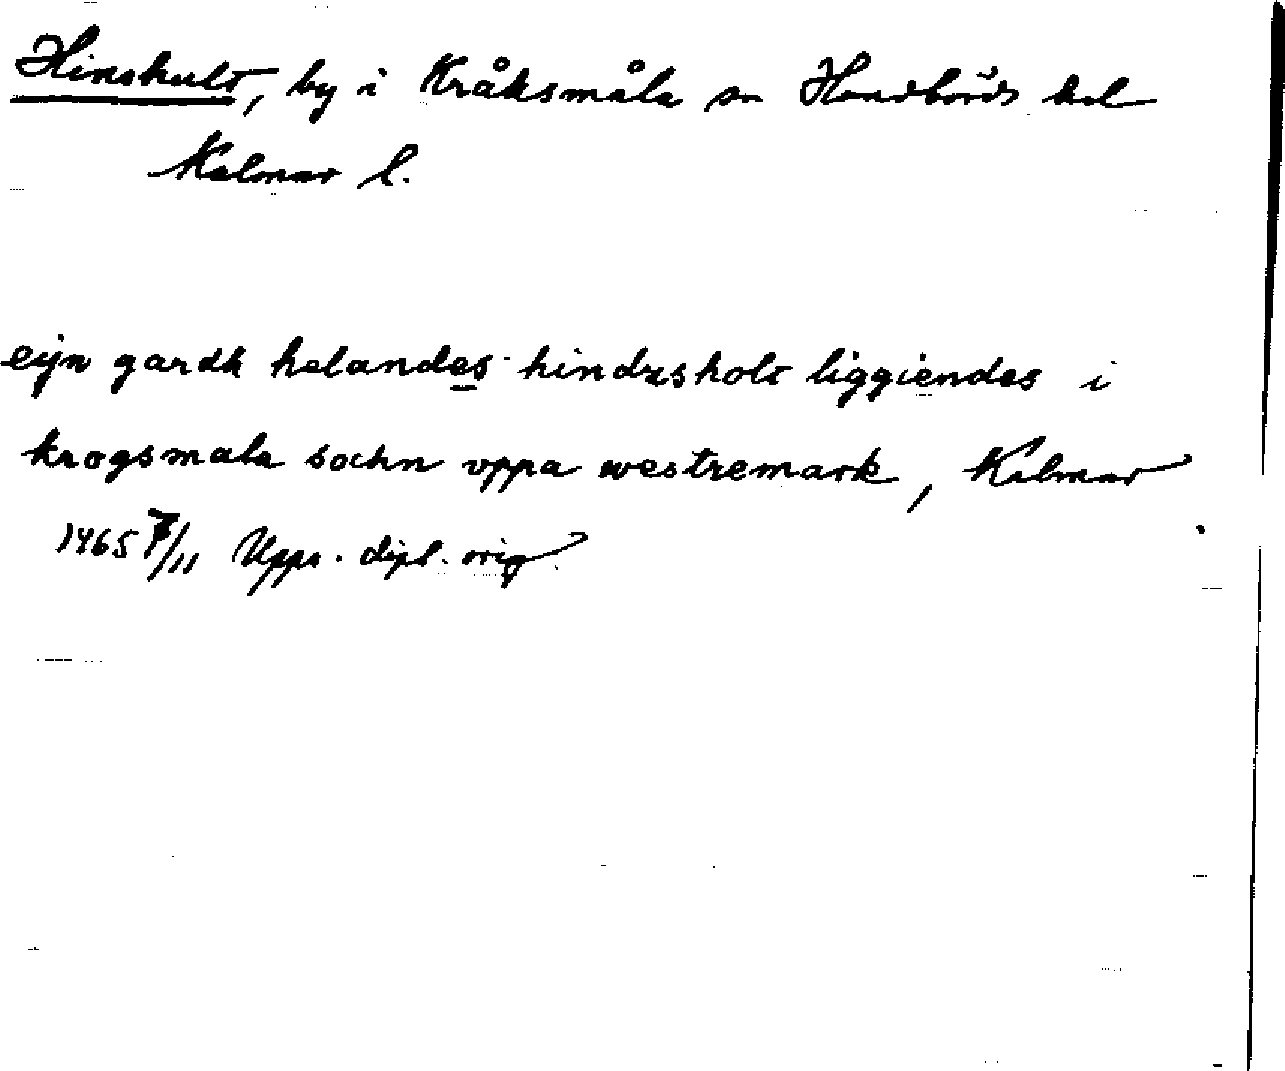 Hinskult, by i Kråksmåla sn Handbörds hd
Kalmar l.
eijn gardh helandes hindzsholt liggiendes i
krogsmala sochn vppa westremark, Kalmar
1465 7/11 Upps. dipl. orig